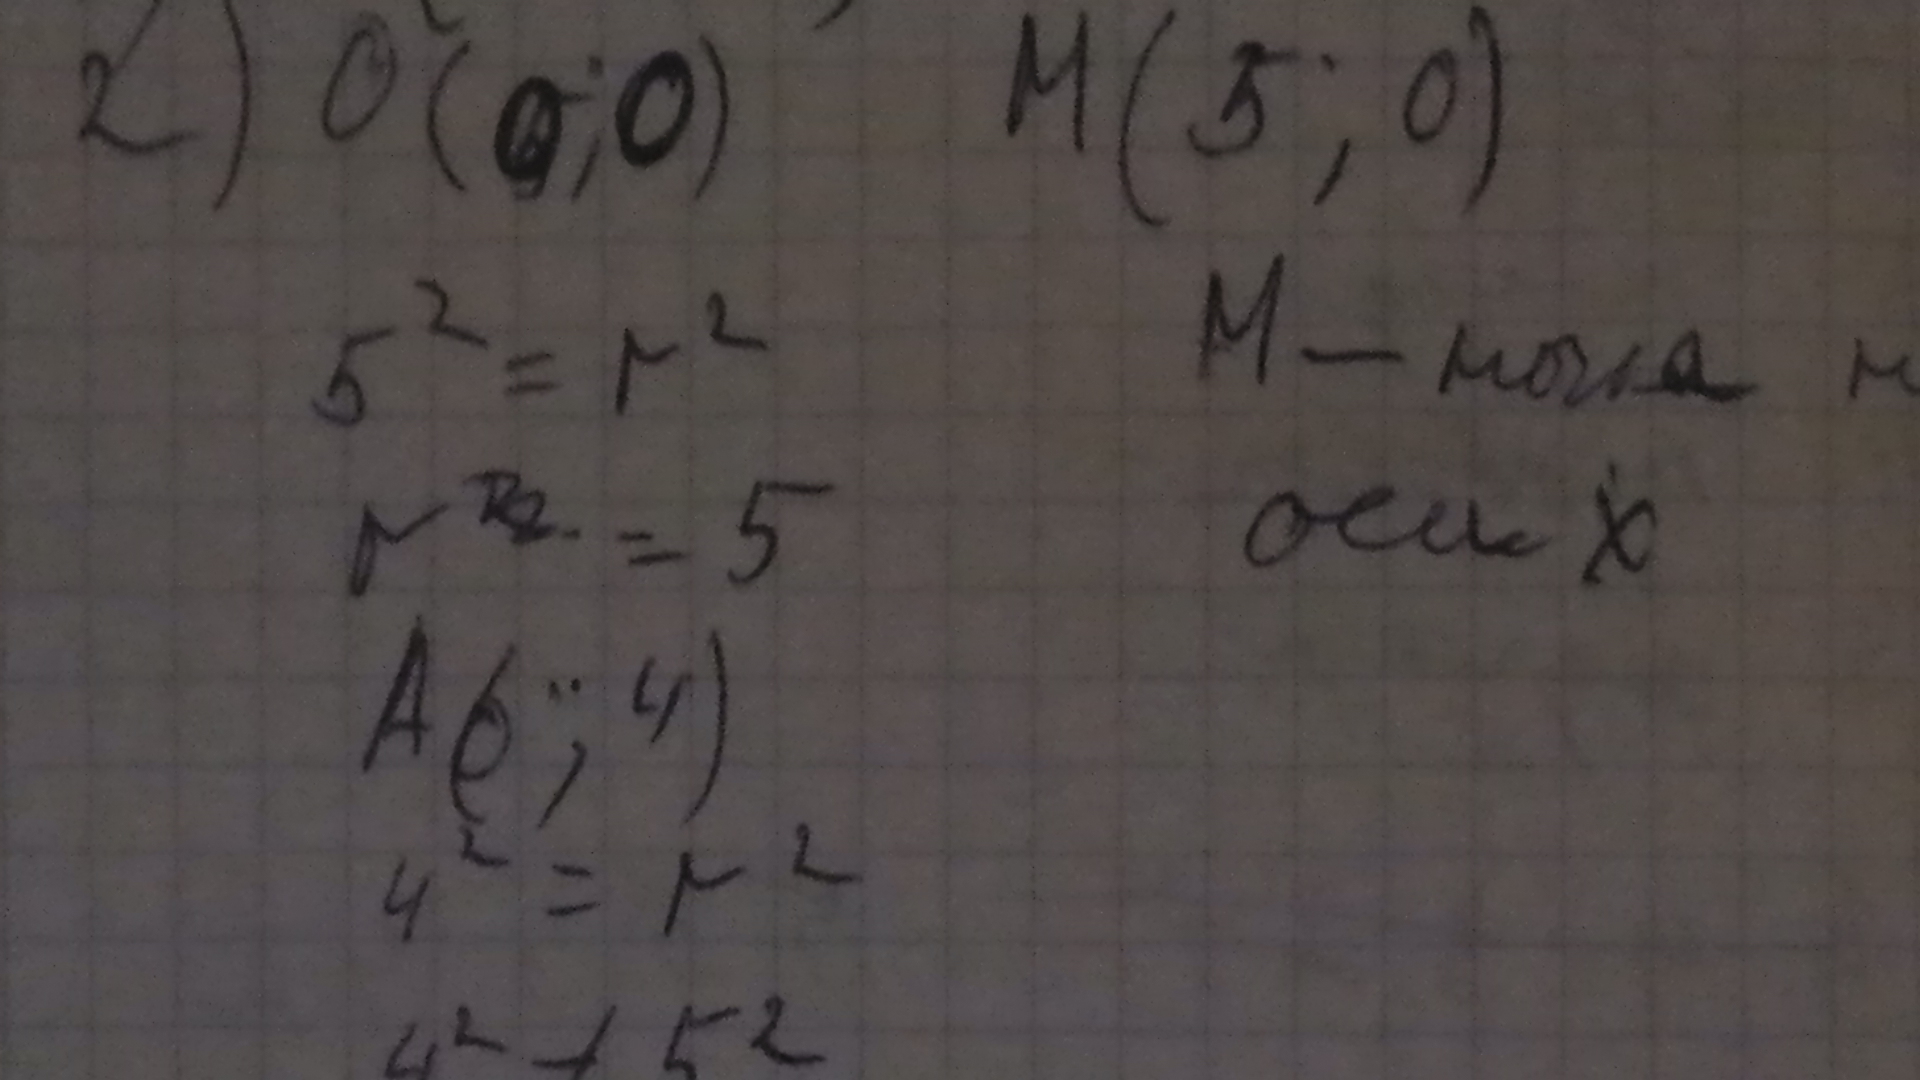 2) O (0; 0) M (5; 0)
5² = r² M — точка
r = 5 оси x
A (0; 4)
4² = r²
4² ≠ 5²